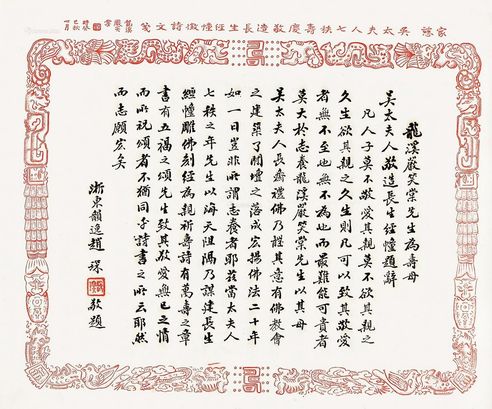 家慈 吳太夫人七秩壽慶敬造長生經幢徵詩文箋
龍溪嚴笑棠先生為壽母
吳太夫人敬造長生經幢題辭
凡人子莫不敬愛其親莫不欲其親之
久生欲其親之久生則凡可以致其敬愛
者無不至也無不為也而最難能可貴者
莫大於志養龍溪嚴笑棠先生以其母
吳太夫人長齋禮佛乃體其意有佛教會
之建築了閒壇之落成宏揚佛法二十年
如一日豈非所謂志養者耶茲當太夫人
七秩之年先生以海天阻隔乃謀建長生
經幢雕佛刻經為親祈壽詩有萬壽之章
書有五福之頌先生致其敬愛無已之情
而所祝頌者不猶同乎詩書之所云耶然
而志願宏矣
浙東韻逸趙琛 敬題